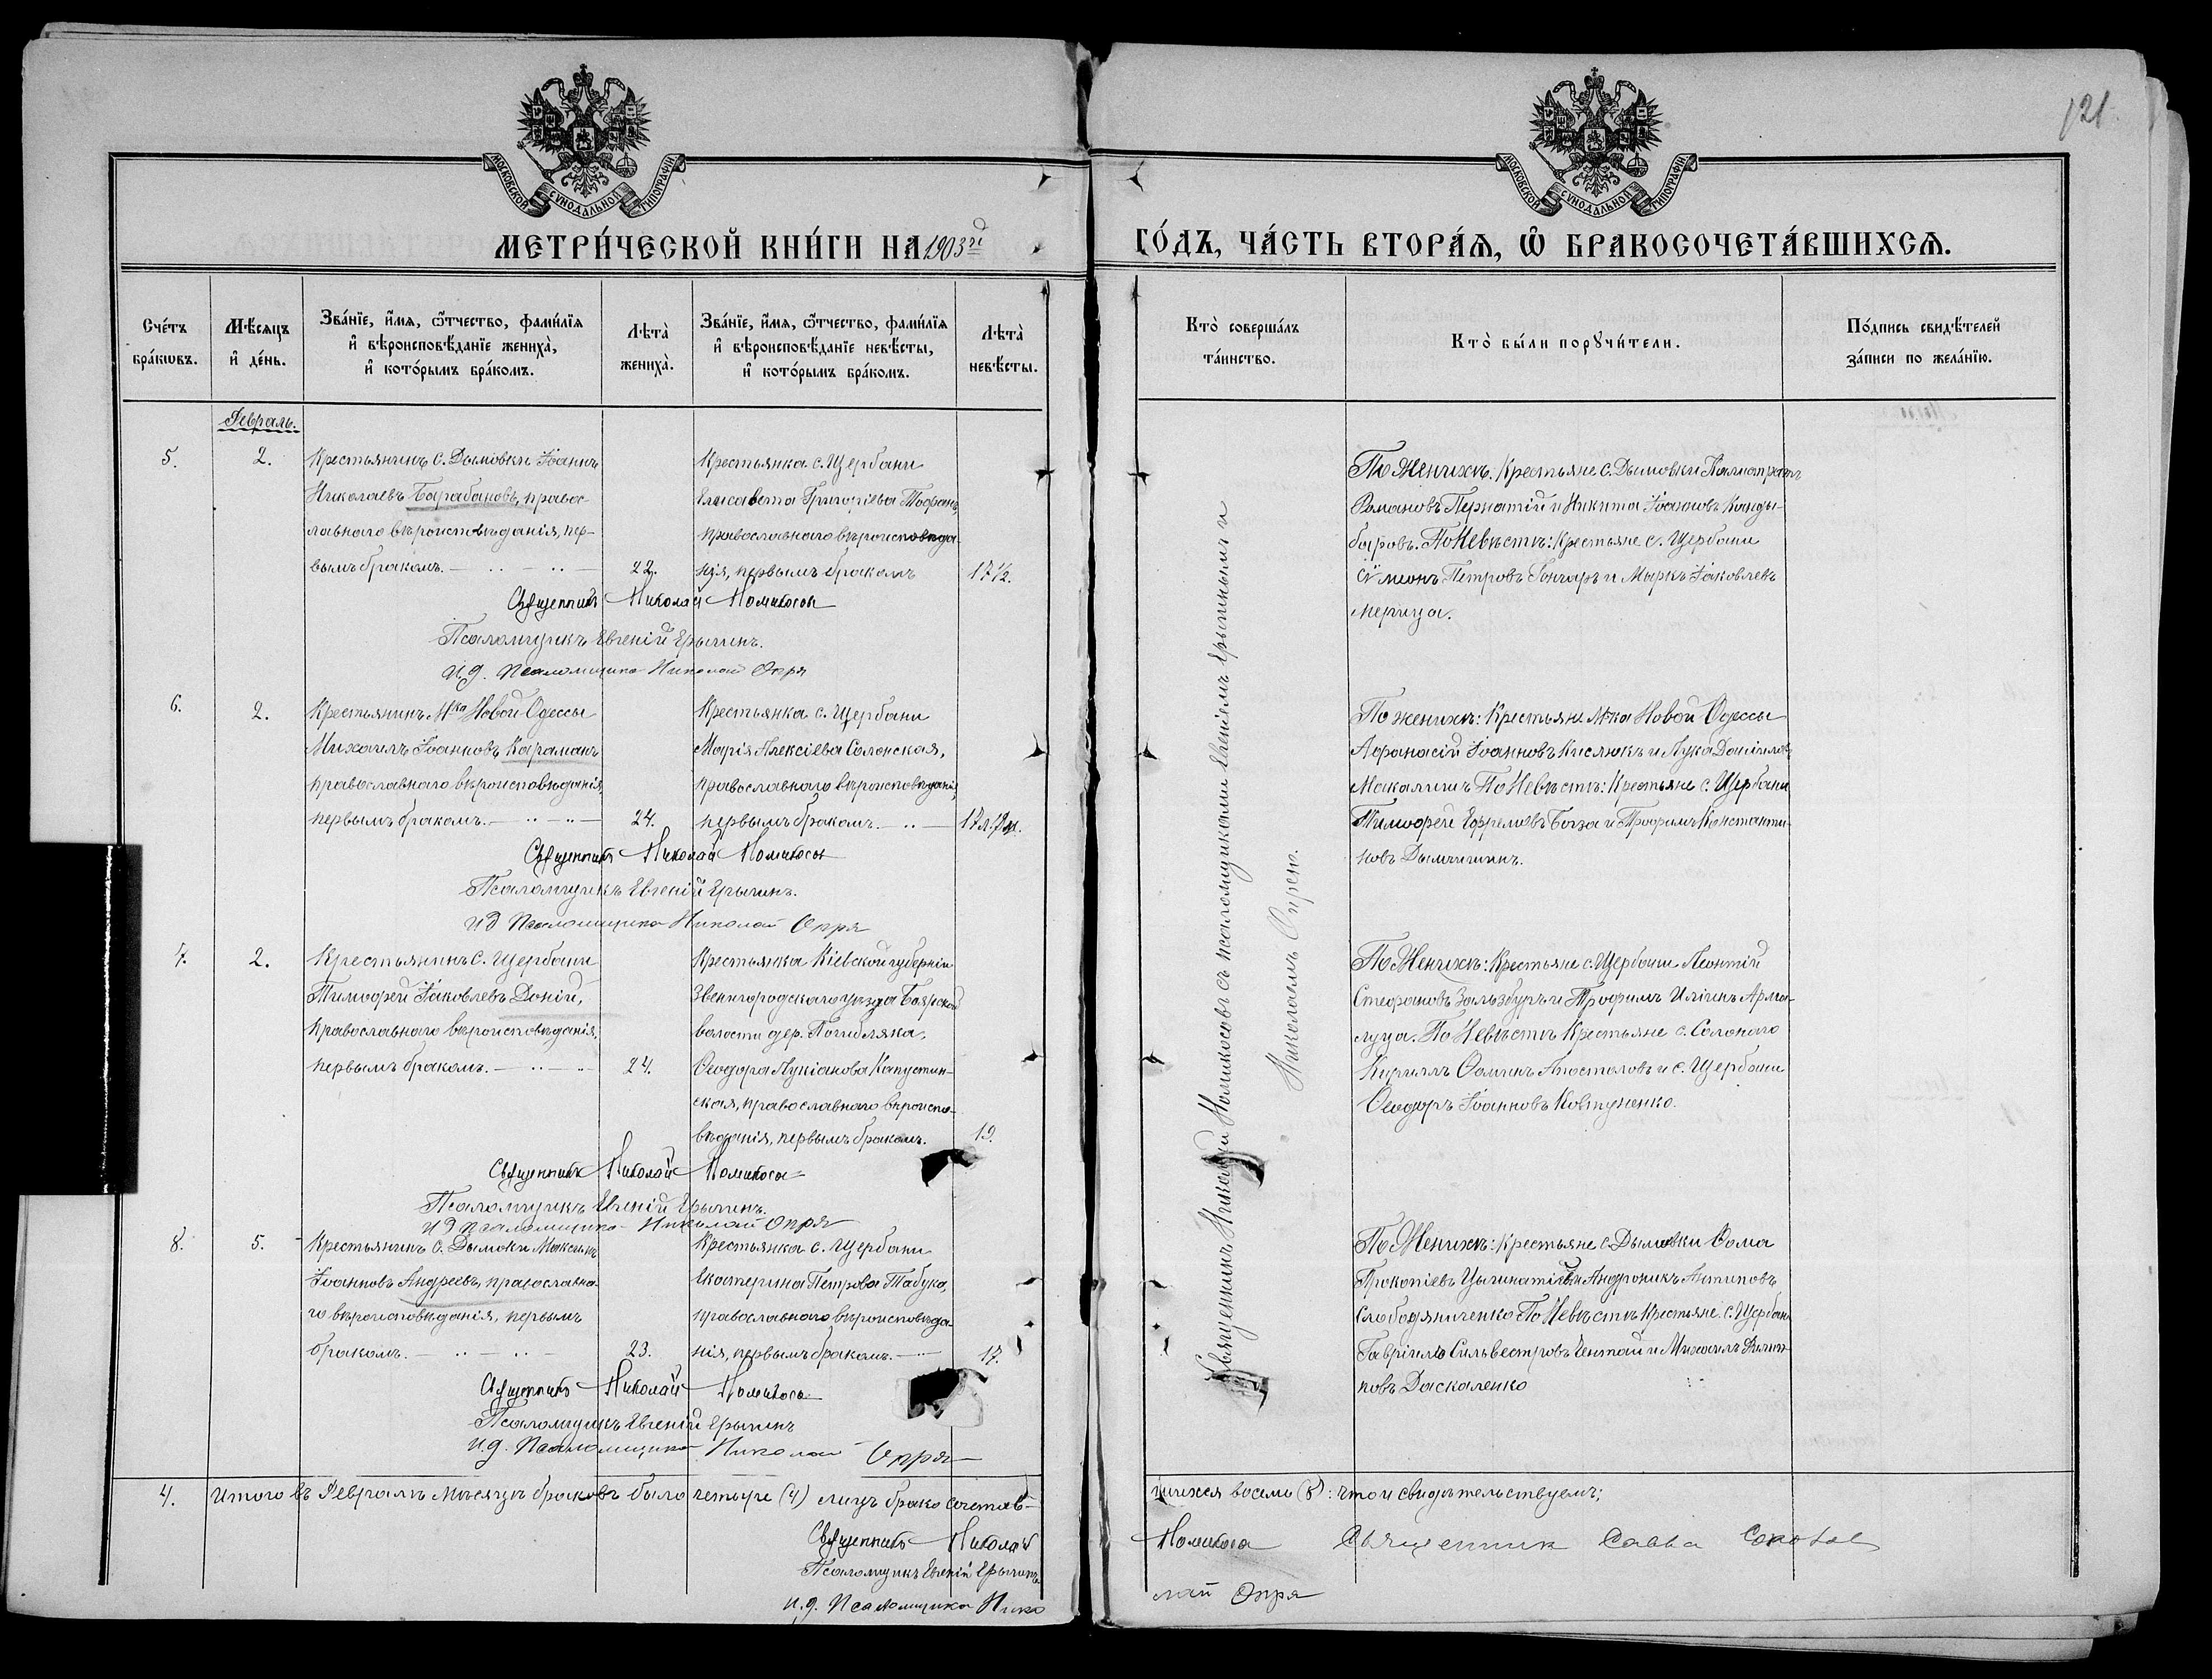 121
МОСКОВСКОЙ СѴНОДАЛЬНОЙ ТИПОГРАФІИ
МОСКОВСКОЙ СѴНОДАЛЬНОЙ ТИПОГРАФІИ
МЕТРИ́ЧЕСКОЙ КНИ́ГИ НА 1903й
ГО́ДЪ, ЧА́СТЬ ВТОРА́Я, Ѡ БРАКОСОЧЕТА́ВШИХСѦ.
Сче́тъ бра́кѡвъ.
Мѣ́сяцъ и҆ де́нь.
Зва́нїе, и҆́мѧ, ѻ҆́тчество, фами́лїя
и҆ вѣроисповѣ́данїе жениха̀,
и҆ кото́рымъ бра́комъ.
Лѣта̀ жениха̀.
Зва́нїе, и҆́мѧ, ѻ҆́тчество, фами́лїя
и҆ вѣроисповѣ́данїе невѣ́сты,
и҆ кото́рымъ бра́комъ.
Лѣта̀ невѣ́сты.
Кто̀ соверша́лъ та́инство.
Кто̀ бы́ли порꙋчи́тели.
По́дпись свидѣ́телей за́писи по жела́нїю.
Февраль.
5.
2.
Крестьянинъ с. Дымовки Іоаннъ
Николаевъ Барабановъ, правос-
лавнаго вѣроисповѣданія, пер-
вымъ бракомъ.
22.
Крестьянка с. Щербани
Елисавета Григоріева Тофанъ,
православнаго вѣроисповѣда-
нія, первымъ бракомъ
17½.
По Женихѣ: Крестьяне с. Дымовки
Романовъ Пернатій и Никита Іоанновъ Канды-
баровъ. По Невѣстѣ: Крестьяне с. Щербани
Сѵмеонъ Петровъ Гончаръ и Маркъ Іаковлевъ
Мерица.
Священникъ Николай Номикосъ
Псаломщикъ Евгеній Ерыгинъ.
И.д. Псаломщика Николай Опря
6.
2.
Крестьянинъ Мка Новой Одессы
Михаилъ Іоанновъ Караманъ
православнаго вѣроисповѣданія,
первымъ бракомъ.
24.
Крестьянка с. Щербани
Марія Алексіева Солонская,
православнаго вѣроисповѣданія,
первымъ бракомъ.
17л. 7м.
По женихѣ: Крестьяне Мка Новой Одессы
Афанасій Іоанновъ Кислюкъ и Лука Даніиловъ
По Невѣстѣ: Крестьяне с. Щербани
Тимофей Ефремовъ Боза и Трофимъ Константи-
новъ Дымчишинъ.
Священникъ Николай Номикосъ
Псаломщикъ Евгеній Ерыгинъ.
ИД Псаломщика Николай Опря
7.
2.
Крестьянинъ с. Щербани
Тимофей Іаковлевъ Доній,
православнаго вѣроисповѣданія,
первымъ бракомъ.
24.
Крестьянка Кіевской губерніи
Звенигородскаго уѣзда Боярской
волости дер. Погибляка,
Ѳеодора Лукіанова Капустин-
ская, православнаго вѣроиспо-
вѣданія, первымъ бракомъ.
19.
По Женихѣ: Крестьяне с. Щербани Леонтій
Стефановъ Зальзбуръ и Трофимъ Иліинъ Арма-
луца. По Невѣстѣ Крестьяне с. Солонаго
Кириллъ Ѳоминъ Апостоловъ и с. Щербани
Ѳеодоръ Іоанновъ Ковтуненко.
Священникъ Николай Номикосъ
Псаломщикъ Евгеній Ерыгинъ.
И Д Псаломщика Николай Опря
8.
5.
Крестьянинъ с. Дымовки Максимъ
Іоанновъ Андреевъ, православна-
го вѣроисповѣданія, первымъ
бракомъ.
23.
Крестьянка с. Щербани
Екатерина Петрова Табука,
православнаго вѣроисповѣда-
нія, первымъ бракомъ.
17.
По Женихѣ: Крестьяне с. Дымовки Ѳома
Прокопіевъ и Андроникъ Антиповъ
Слободяниченко По Невѣстѣ Крестьяне с. Щербани
Гавріилъ Сильвестровъ Гентай и Михаилъ Филип-
повъ Даскаленко
Священникъ Николай Номикосъ
Псаломщикъ Евгеній Ерыгинъ
И.д. Псаломщика Николай Опря
Священникъ Николай Номикосъ съ псаломщиками Евгеніемъ Ерыгинымъ и
Николаемъ Опрею.
4.
Итого въ Февралѣ Мѣсяцѣ браковъ было четыре (4) лицъ бракосочетав-
шихся восемь (8): что и свидѣтельствуемъ;
Священникъ Николай Номикосъ
Священник Савва
Псаломщикъ Евгеній Ерыгинъ.
И.д. Псаломщика Николай Опря